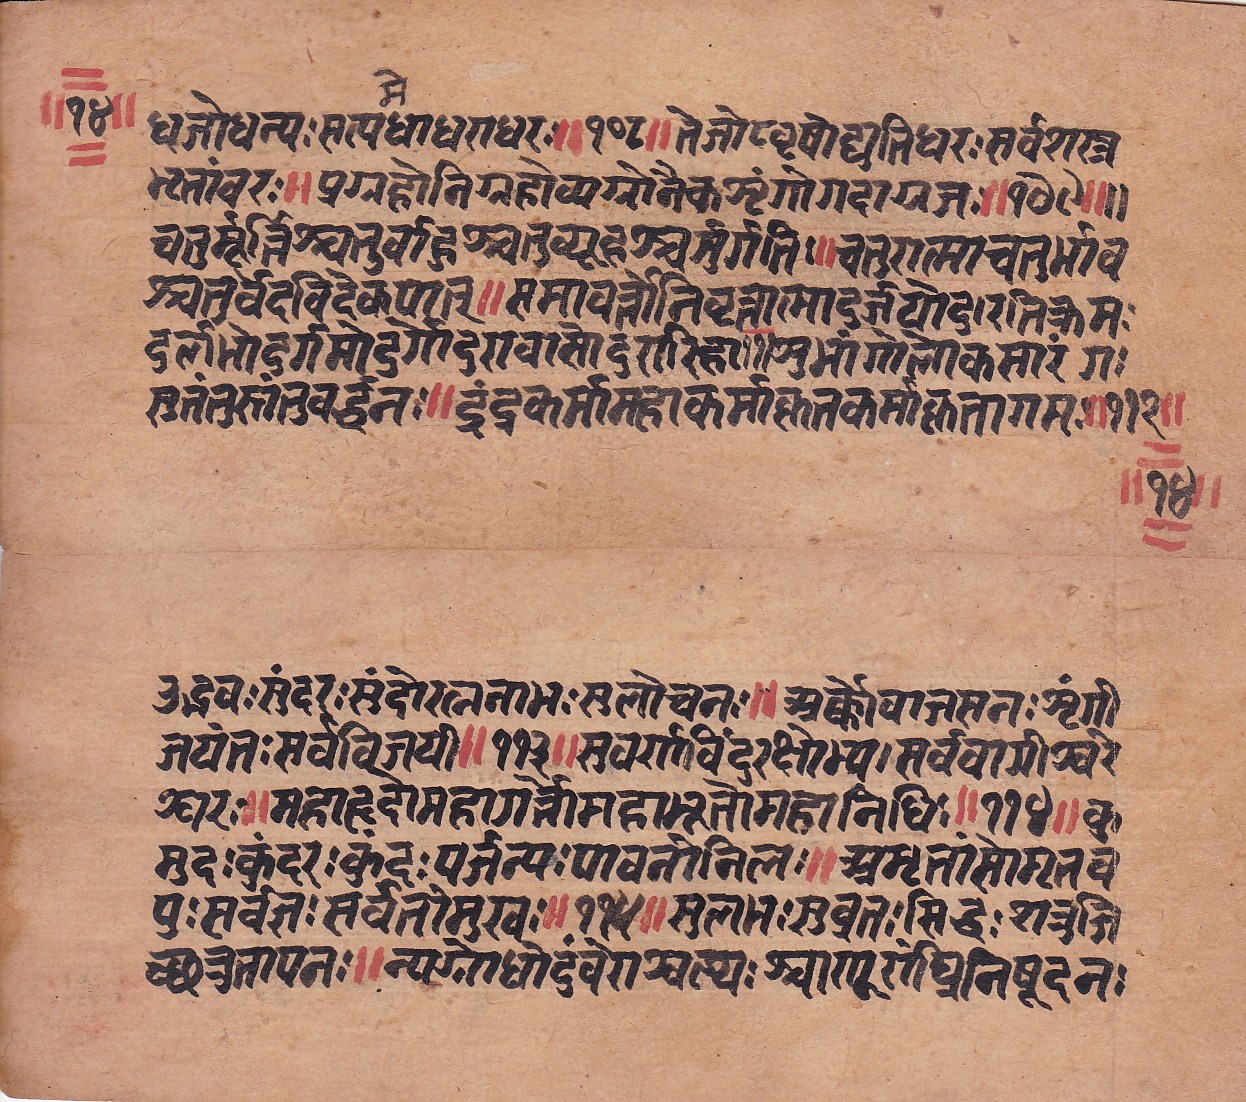 मे
॥१४॥ धजोधन्यः सत्यधाधराधरः॥१०८॥तेजोऽवृषोद्युतिधरः सर्वशस्त्र
भृतांवरः॥प्रग्रहोनिग्रहोव्यग्रोनैकशृंगोगदाग्रजः॥१०९॥॥
चतुर्मूर्त्तिश्चतुर्बाहुश्चतुव्यूहश्चतुर्गतिः॥चतुरात्माचतुर्भाव
श्चतुर्वेदविदेकपात्॥समावर्त्तोनिवृत्तात्मादुर्जयोदुरतिक्रमः
दुर्लभोदुर्गमोदुर्गोदुरावासोदुरारिहा॥शुभांगोलोकसारंगः
सुतंतुस्तंतुवर्द्धनः॥इंद्रकर्मामहाकर्माकृतकर्माकृतागमः॥११२॥
॥१४॥
उद्भवः सुंदरः सुंदोरत्ननाभः सुलोचनः॥अर्क्कोवाजसनः शृंगी
जयंतः सर्वविजयी॥११३॥सुवर्णविंदुरक्षोभ्य। सर्ववागीश्वरे
श्वरः॥महाह्रदोमहागर्त्तोमहाभूतोमहानिधिः॥११४॥कु
मुदः कुंदरः कुंदः पर्जन्यः पावनोनिलः॥अमृतांसोमृतव
पुः सर्वज्ञः सर्वतोमुखः॥११५॥सुलभः सुव्रतः सिद्धः शत्रुजि
च्छत्रुतापनः॥न्यग्रोधोदुंवरोश्वत्थः श्चाणूरांध्रनिषूदनः